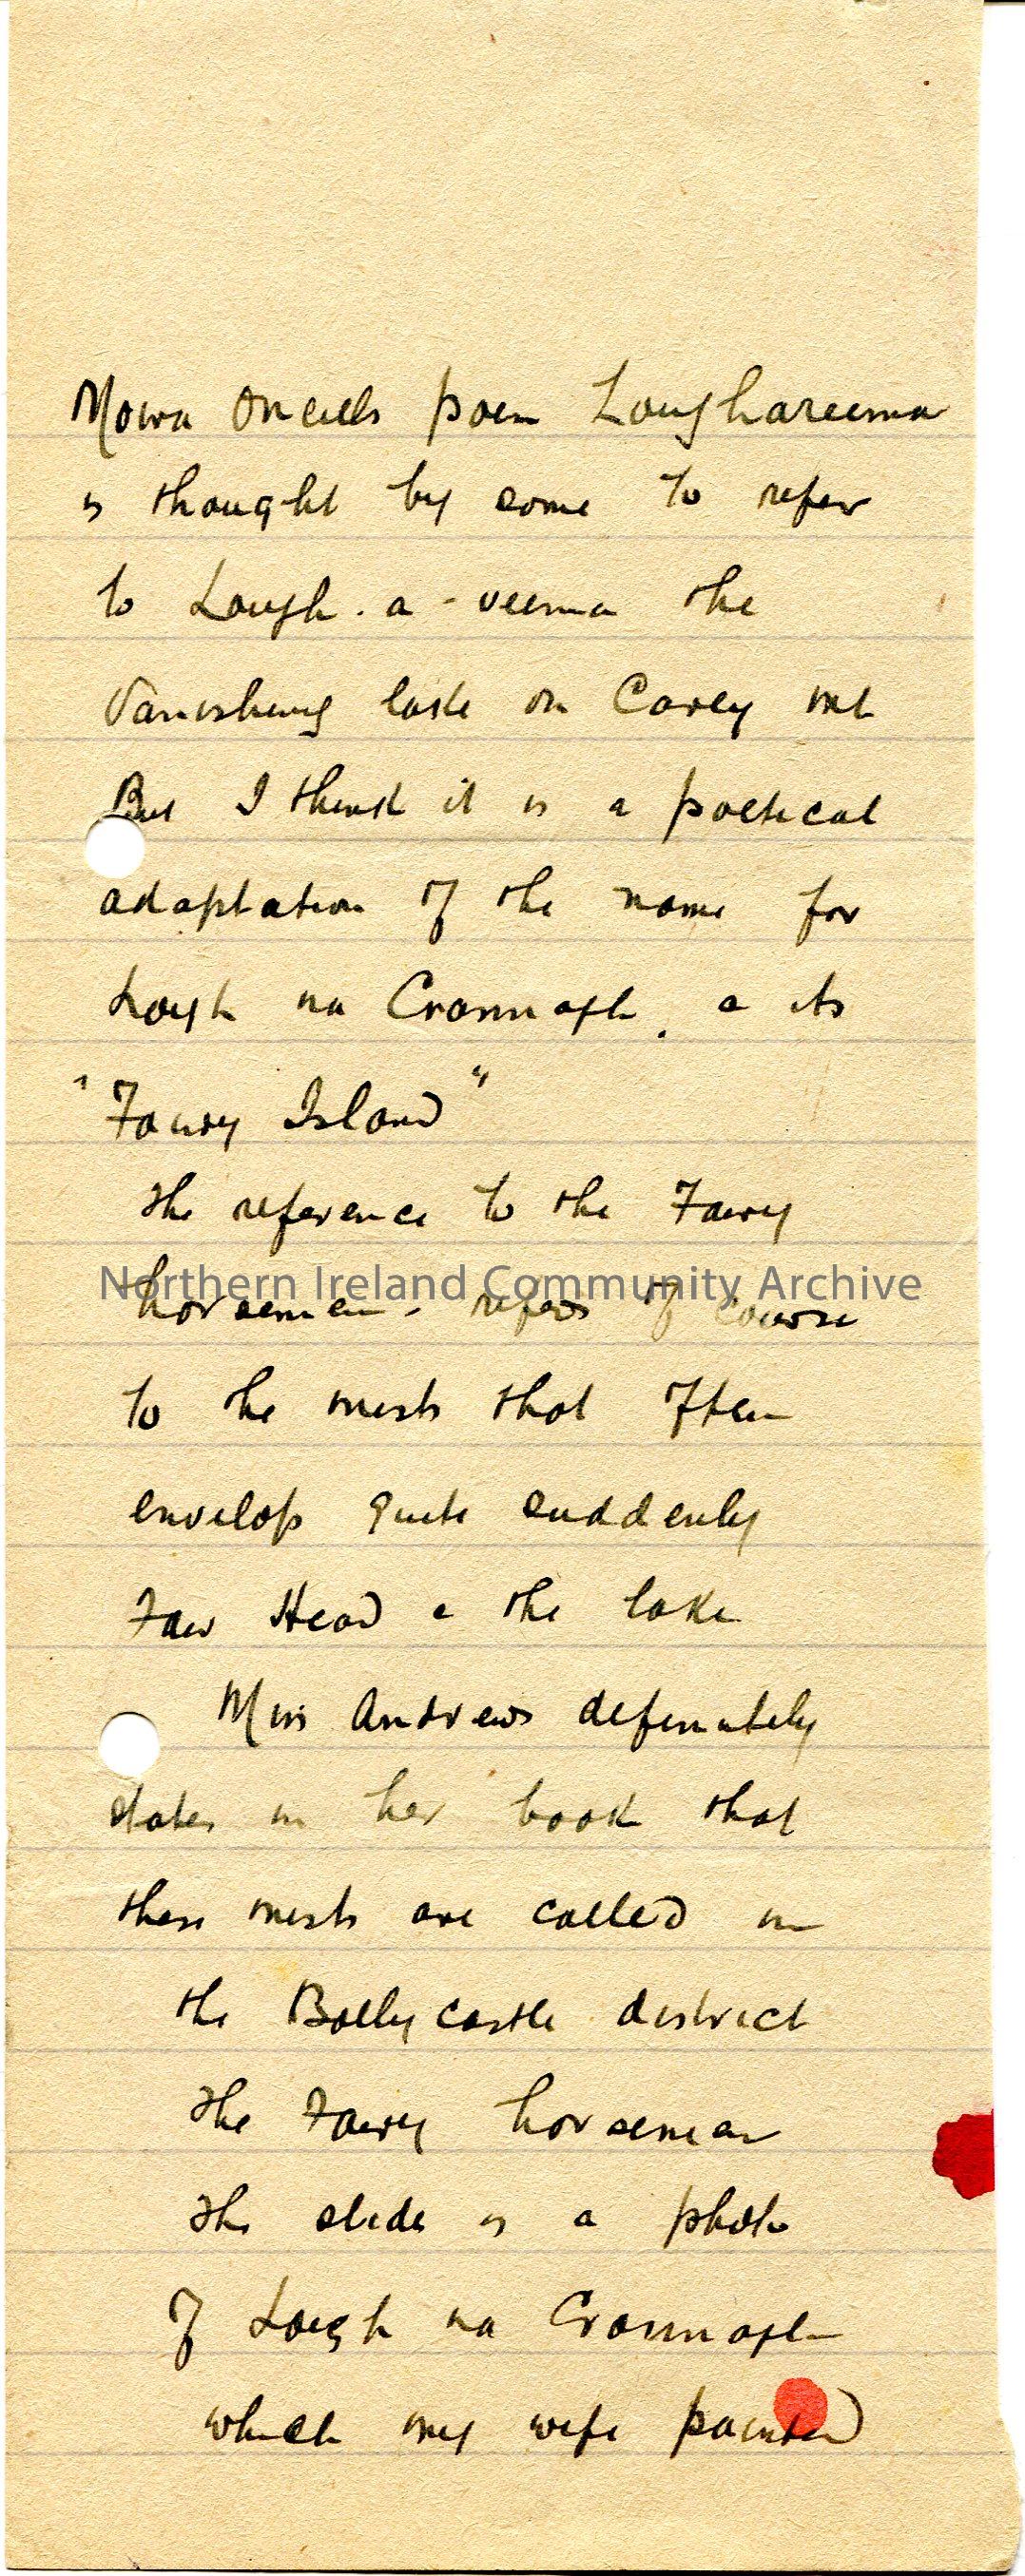 Moira ONeills poem Loughareema
is thought by some to refer
to Lough-a-veema the
Vanishing lake on Carey mt
But I think it is a poetical
adaptation of the name for
Lough na Crannagh. & its
"Fairy Island"
The reference to the Fairy
Northern Ireland Community Archive
horsemen - refers of course
to the mists that often
envelop quite suddenly
Fair Head & the lake
Miss Andrews definitely
states in her book that
these mists are called in
the Ballycastle district
The Fairy horsemen
The slide is a photo
of Lough na Crannagh
which my wife painted